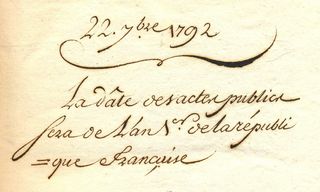 22. 7bre 1792
La dâte des actes publics
sera de L'an 1er de la républi
=que Française